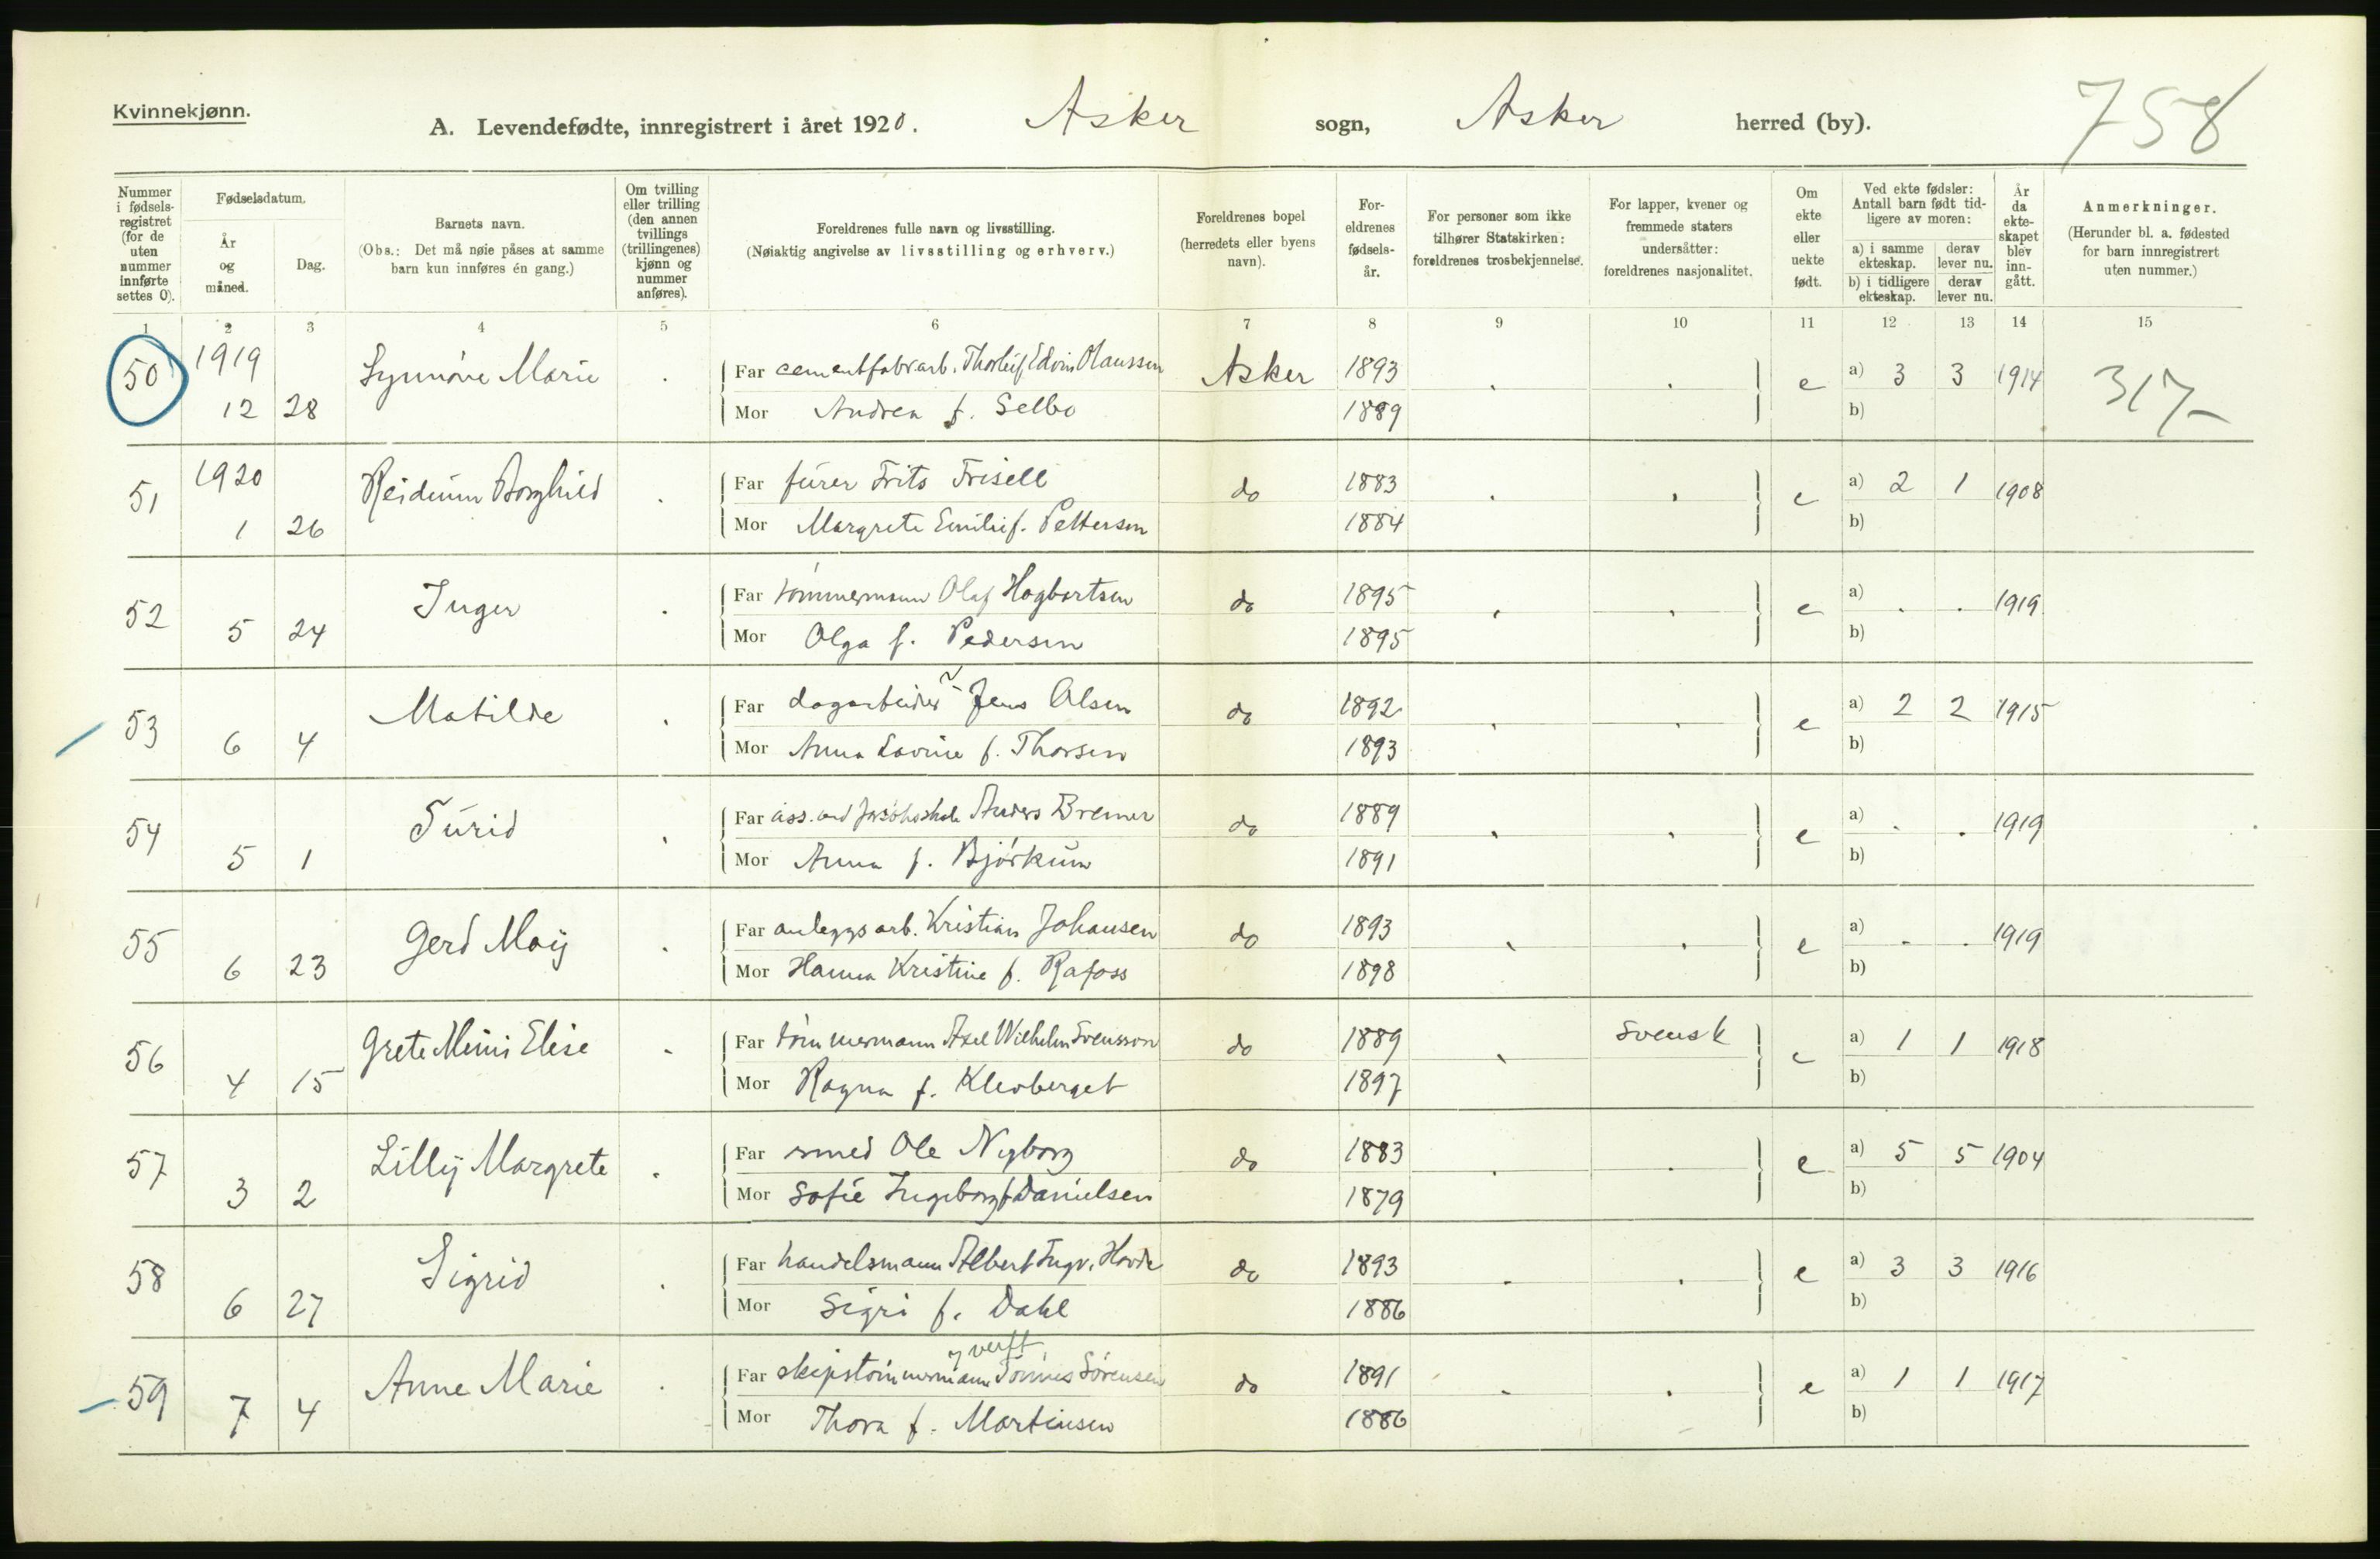 Kvinnekjønn.
A. Levendefødte, innregistrert i året 1920. Asker sogn, Asker herred (by). 758
Nummer i fødsels-registret (for de uten nummer innførte settes 0).
Fødselsdatum.
År og måned.
Dag.
Barnets navn.
(Obs.: Det må nøie påses at samme barn kun innføres én gang.)
Om tvilling eller trilling (den annen tvillings (trillingenes) kjønn og nummer anføres).
Foreldrenes fulle navn og livsstilling.
(Nøiaktig angivelse av livsstilling og erhverv.)
Foreldrenes bopel (herredets eller byens navn).
For-eldrenes fødsels-år.
For personer som ikke tilhører Statskirken: foreldrenes trosbekjennelse.
For lapper, kvener og fremmede staters undersåtter: foreldrenes nasjonalitet.
Om ekte eller uekte født.
Ved ekte fødsler: Antall barn født tid-ligere av moren:
a) i samme ekteskap. derav lever nu.
b) i tidligere ekteskap. derav lever nu.
År da ekte-skapet blev inn-gått.
Anmerkninger.
(Herunder bl. a. fødested for barn innregistrert uten nummer.)
1 2 3 4 5 6 7 8 9 10 11 12 13 14 15
50 1919 12 28 Synnöve Marie . Far cementfabrarb. Thorleif Edvin Olaussen Asker 1893 . . e a) 3 3 1914 317-
Mor Andrea f. Selbo 1889 b)
51 1920 1 26 Reidunn Borghild . Far fürer Frits Frisell do 1883 . . e a) 2 1 1908
Mor Margrete Emilie f. Pettersen 1884 b)
52 5 24 Inger . Far tömmermann Olaf Hagbartsen do 1895 . . e a) . . 1919
Mor Olga f. Pedersen 1895 b)
53 6 4 Matilde . Far dagarbeider Jens Olsen do 1892 . . e a) 2 2 1915
Mor Anna Lovise f. Thorsen 1893 b)
54 5 1 Turid . Far ass. ved Anders Bremer do 1889 . . e a) . . 1919
Mor Anna f. Björkum 1891 b)
55 6 23 Gerd Maij . Far anleggsarb. Kristian Johansen do 1893 . . e a) . . 1919
Mor Hanna Kristine f. Rafoss 1898 b)
56 4 15 Grete Mimi Elise . Far tömmermann Axel Wilhelm Svensson do 1889 . Svensk e a) 1 1 1918
Mor Ragna f. Klevberget 1897 b)
57 3 2 Lillij Margrete . Far smed Ole Nyborg do 1883 . . e a) 5 5 1904
Mor Sofie Ingeborg f Danielsen 1879 b)
58 6 27 Sigrid . Far handelsmann Albert Ingv. Hovde do 1893 . . e a) 3 3 1916
Mor Sigri f. Dahl 1886 b)
verft
59 7 4 Anne Marie . Far skipstömmermann Tönnes Sörensen do 1891 . . e a) 1 1 1917
Mor Thora f. Martinsen 1886 b)